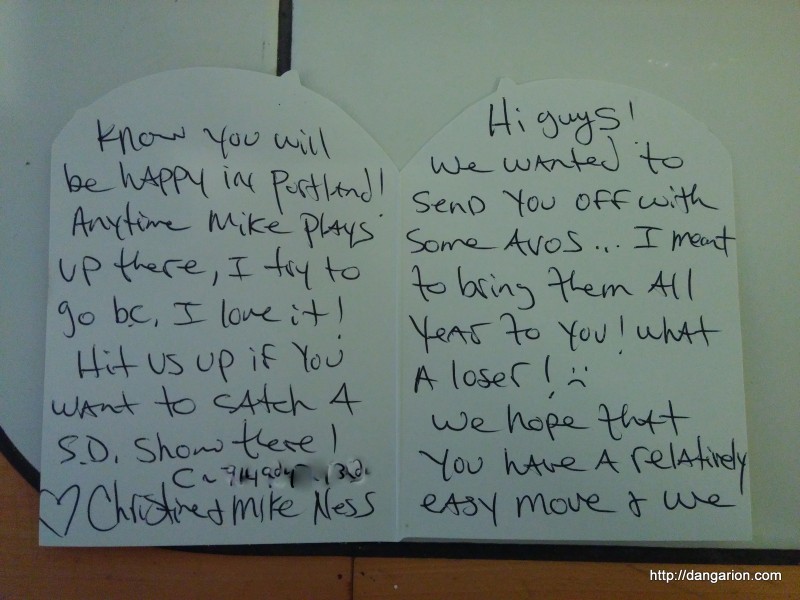 Hi guys!
We wanted to
send you off with
some avos... I meant
to bring them all
year to you! What
a loser! :(
We hope that
you have a relatively
easy move & we
know you will
be happy in Portland!
Anytime Mike plays
up there, I try to
go b.c. I love it!
Hit us up if you
want to catch a
S.D. show there!
♡ Christine & Mike Ness
http://dangarion.com